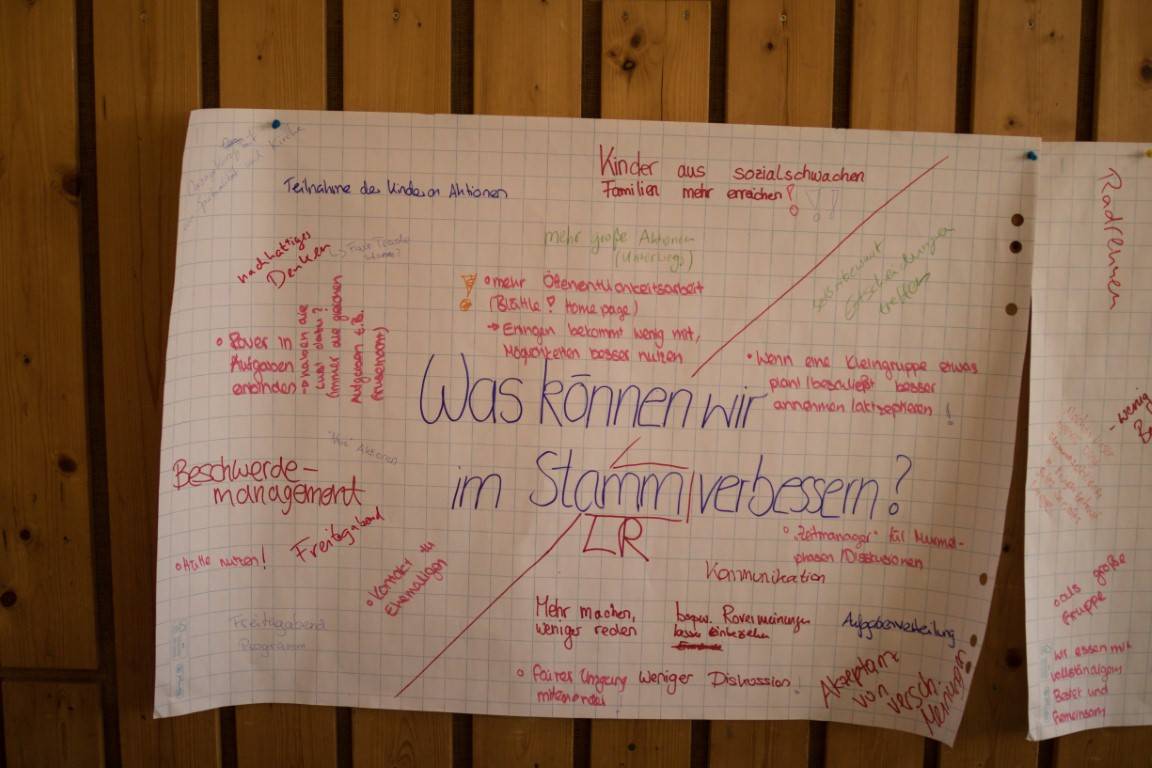 Kirche
Teilnahme der Kinder an Aktionen
Kinder aus sozialschwachen
Familien mehr erreichen!
nachhaltiges
Denken
Fair Trade
mehr große Aktionen
(Unterlegs)
Entscheidungen
treffen
! mehr Öffenentlichkeitsarbeit
(Blättle? Homepage)
→ Eningen bekommt wenig mit,
Möglichkeiten besser nutzen
• Rover in
Aufgaben
einbinden
→ haben die
Lust dazu?
(immer die gleichen
Aufgaben z.B.
• Wenn eine Kleingruppe etwas
plant/beschließt besser
annehmen/aktzeptieren!
Was können wir
im Stamm verbessern?
LR
Aktionen
Beschwerde-
management
Freitagabend
• Hütte nutzen!
• Kontakt zu
Ehemaligen
Freitagabend
Programm
• "Zeitmanager" für
phasen/Disskusionen
Kommunikation
Mehr machen,
weniger reden
bzgw. Rovermeinungen
besser einbeziehen
Aufgabenverteilung
• fairer Umgang
miteinander
weniger Diskussion!
Akzeptanz
von versch.
Meinungen
Radrennen
- wenig
• als große
Gruppe
Wir essen mit
vollständigem
Besteck und
Gemeinsam